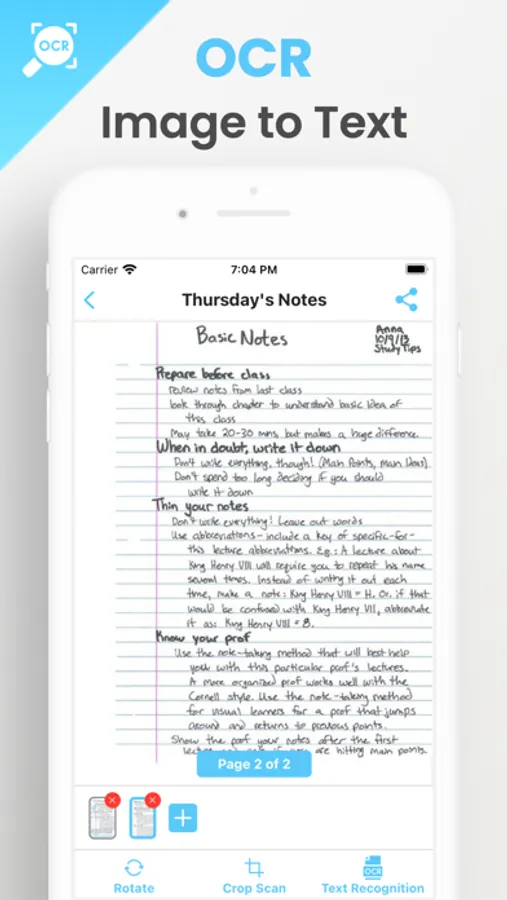 OCR
OCR
Image to Text
Carrier
7:04 PM
Thursday's Notes
Basic Notes
Anna
10/9/13
Study Tips
Prepare before class
review notes from last class
look through chapter to understand basic idea of
this class
May take 20-30 mins, but makes a huge difference.
When in doubt, write it down
Don't write everything, though! (Main Points, main ideas).
Don't spend too long deciding if you should
write it down
Thin your notes
Don't write everything! Leave out words
Use abbreviations - include a key of specific-for-
this lecture abbreviations. Eg.: A lecture about
King Henry VIII will require you to repeat his name
several times. Instead of writing it out each
time, make a note: King Henry VIII = H. Or, if that
would be confused with King Henry VII, abbreviate
it as: King Henry VIII = 8.
Know your prof
Use the note-taking method that will best help
you with this particular prof's lectures.
A more organized prof works well with the
Cornell style. Use the note-taking method
for visual learners for a prof that jumps
around and returns to previous points.
Show the prof your notes after the first
lecture are hitting main points.
Page 2 of 2
Rotate
Crop Scan
OCR
Text Recognition